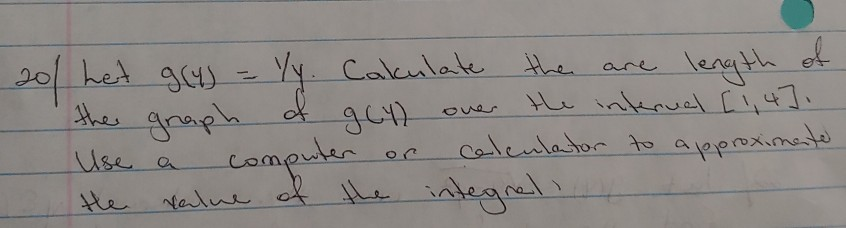 20| Let g(y) = 1/y. Calculate the arc length of
the graph of g(y) over the interval [1,4].
Use a computer or calculator to approximate
the value of the integral.